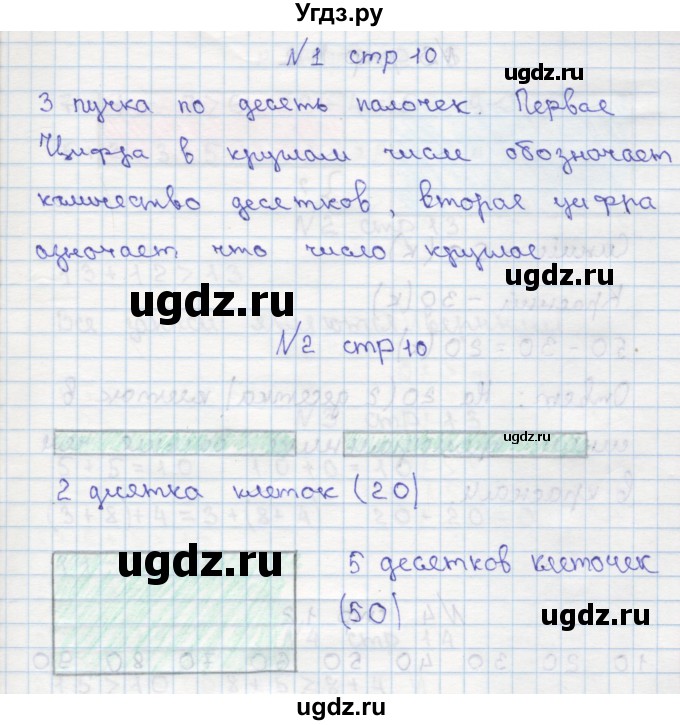 Угдз.ру
№1 стр 10
ugdz.ru
3 пучка по десеть палочек. Первае
Цифра в круглам числе обозначает
количество десетков, вторая цифра
азночает что число круглое
ugdz.ru
№2 стр 10
ugdz.ru
ugdz.ru
2 дисятка клеток (20)
ugdz.ru
5 десетков клеточек
(50)
ugdz.ru
ugdz.ru